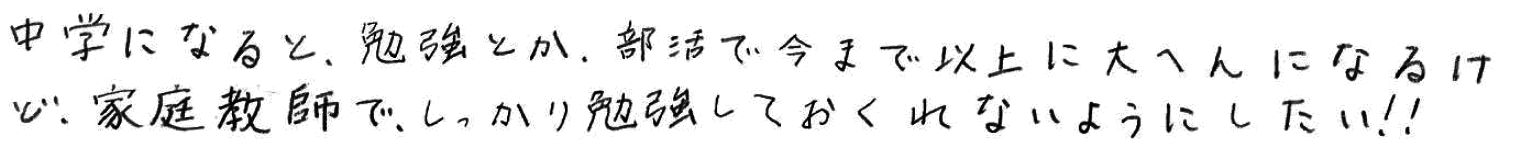 中学になると、勉強とか、部活で今まで以上に大へんになるけ
ど、家庭教師で、しっかり勉強しておくれないようにしたい!!